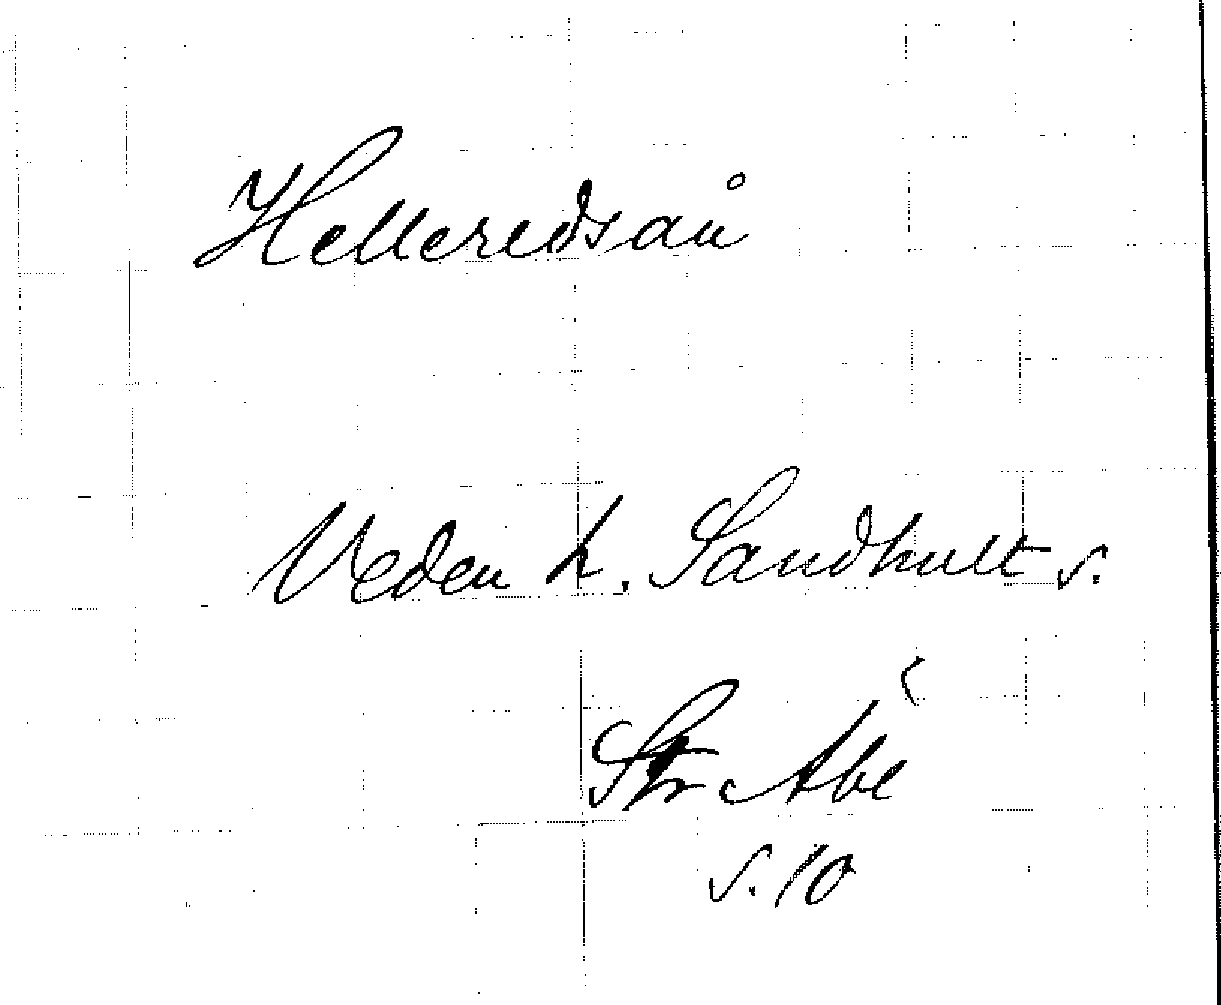 Helleredsån
Veden h. Sandhult s.
Str
s. 10